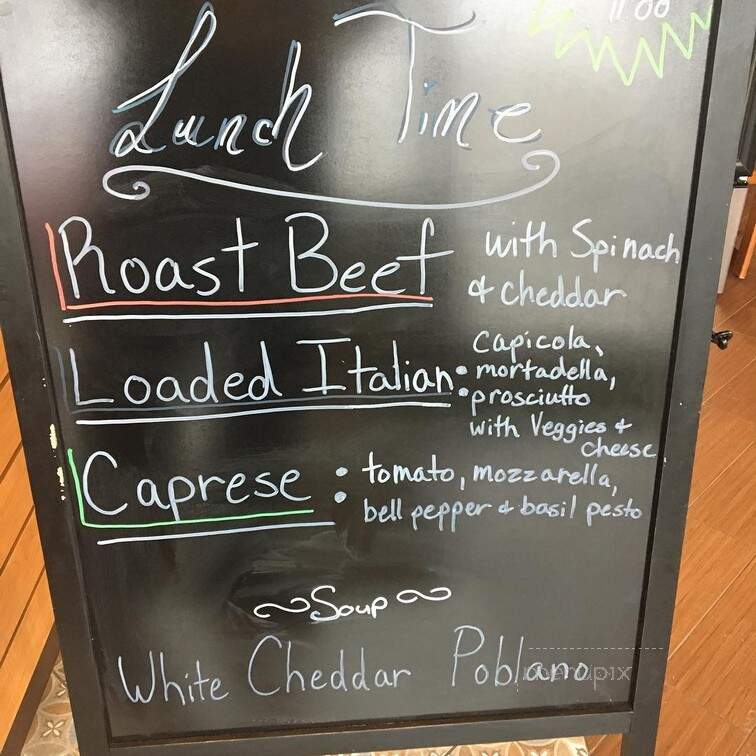 11.00
Lunch Time
Roast Beef with Spinach
& cheddar
Loaded Italian: capicola,
mortadella,
prosciutto
with Veggies &
cheese
Caprese: tomato, mozzarella,
bell pepper & basil pesto
~Soup~
White Cheddar Poblano
menupix